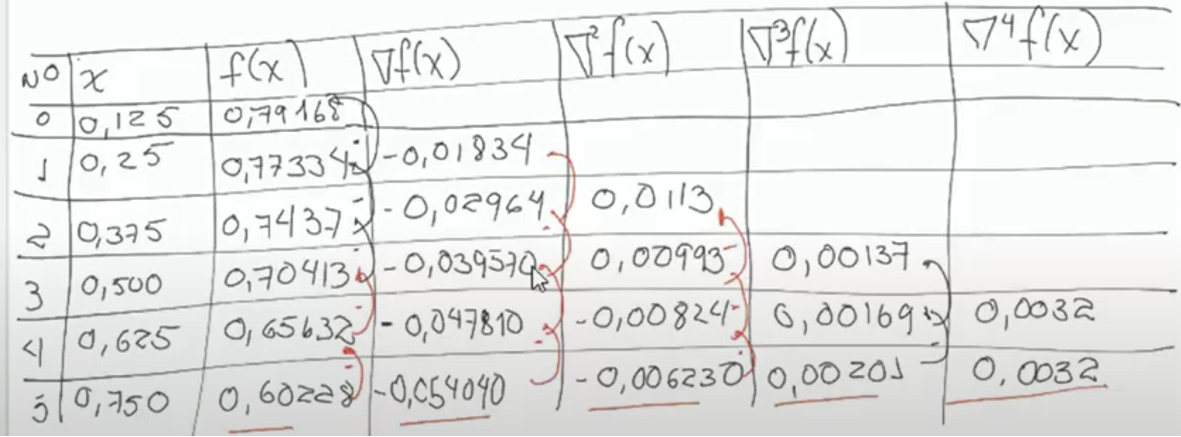 Nº x f(x) ∇f(x) ∇²f(x) ∇³f(x) ∇⁴f(x)
0 0,125 0,79168
1 0,25 0,77334 -0,01834
2 0,375 0,7437 -0,02964 0,0113
3 0,500 0,70413 -0,039570 0,00993 0,00137
4 0,625 0,65632 -0,047810 -0,00824 0,00169 0,0032
5 0,750 0,60228 -0,054040 -0,006230 0,00201 0,0032